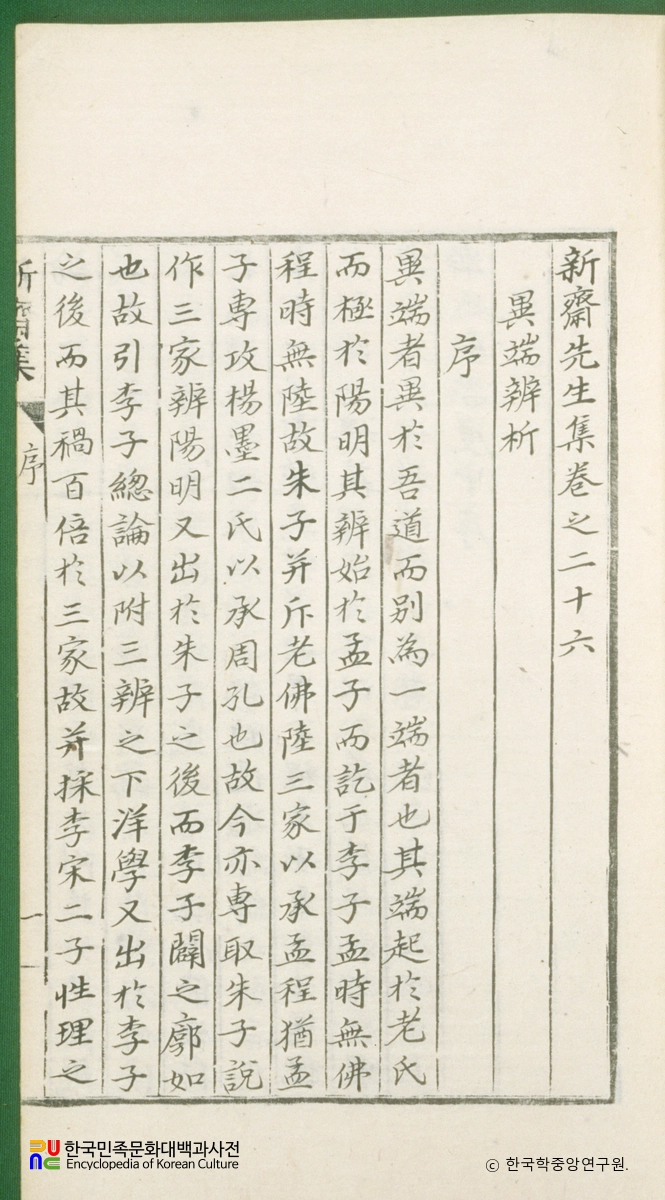 新齋先生集卷之二十六
異端辨析
序
異端者異於吾道而别為一端者也其端起於老氏
而極於陽明其辨始於孟子而訖于李子孟時無佛
程時無陸故朱子并斥老佛陸三家以承孟程猶孟
子專攻楊墨二氏以承周孔也故今亦專取朱子說
作三家辨陽明又出於朱子之後而李子闢之廓如
也故引李子總論以附三辨之下洋學又出於李子
之後而其禍百倍於三家故并採李宋二子性理之
新齋集
序
一
한국민족문화대백과사전
Encyclopedia of Korean Culture
© 한국학중앙연구원.